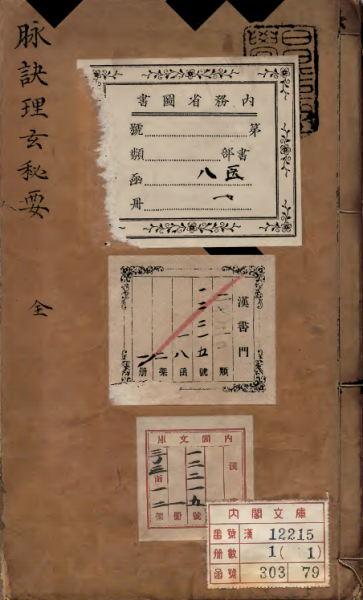 脉訣理玄秘要
全
内務省圖書
第
號
書部
類
医
八函
一册
漢書門
類
一二二一五號
一八函
二架
一册
内閣文庫
漢
一二二一五號
函
架
册
内閣文庫
番號 漢 12215
册數 1( 1)
函號 303 79